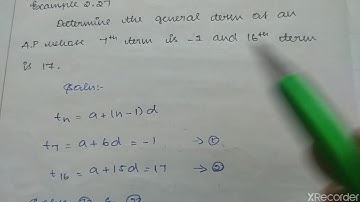 Example 2.27
Determine the general term of an
A.P whose 7th term is -1 and 16th term
is 17.
Soln:
tn = a+(n-1)d
t7 = a+6d = -1 → ①
t16 = a+15d = 17 → ②
XRecorder